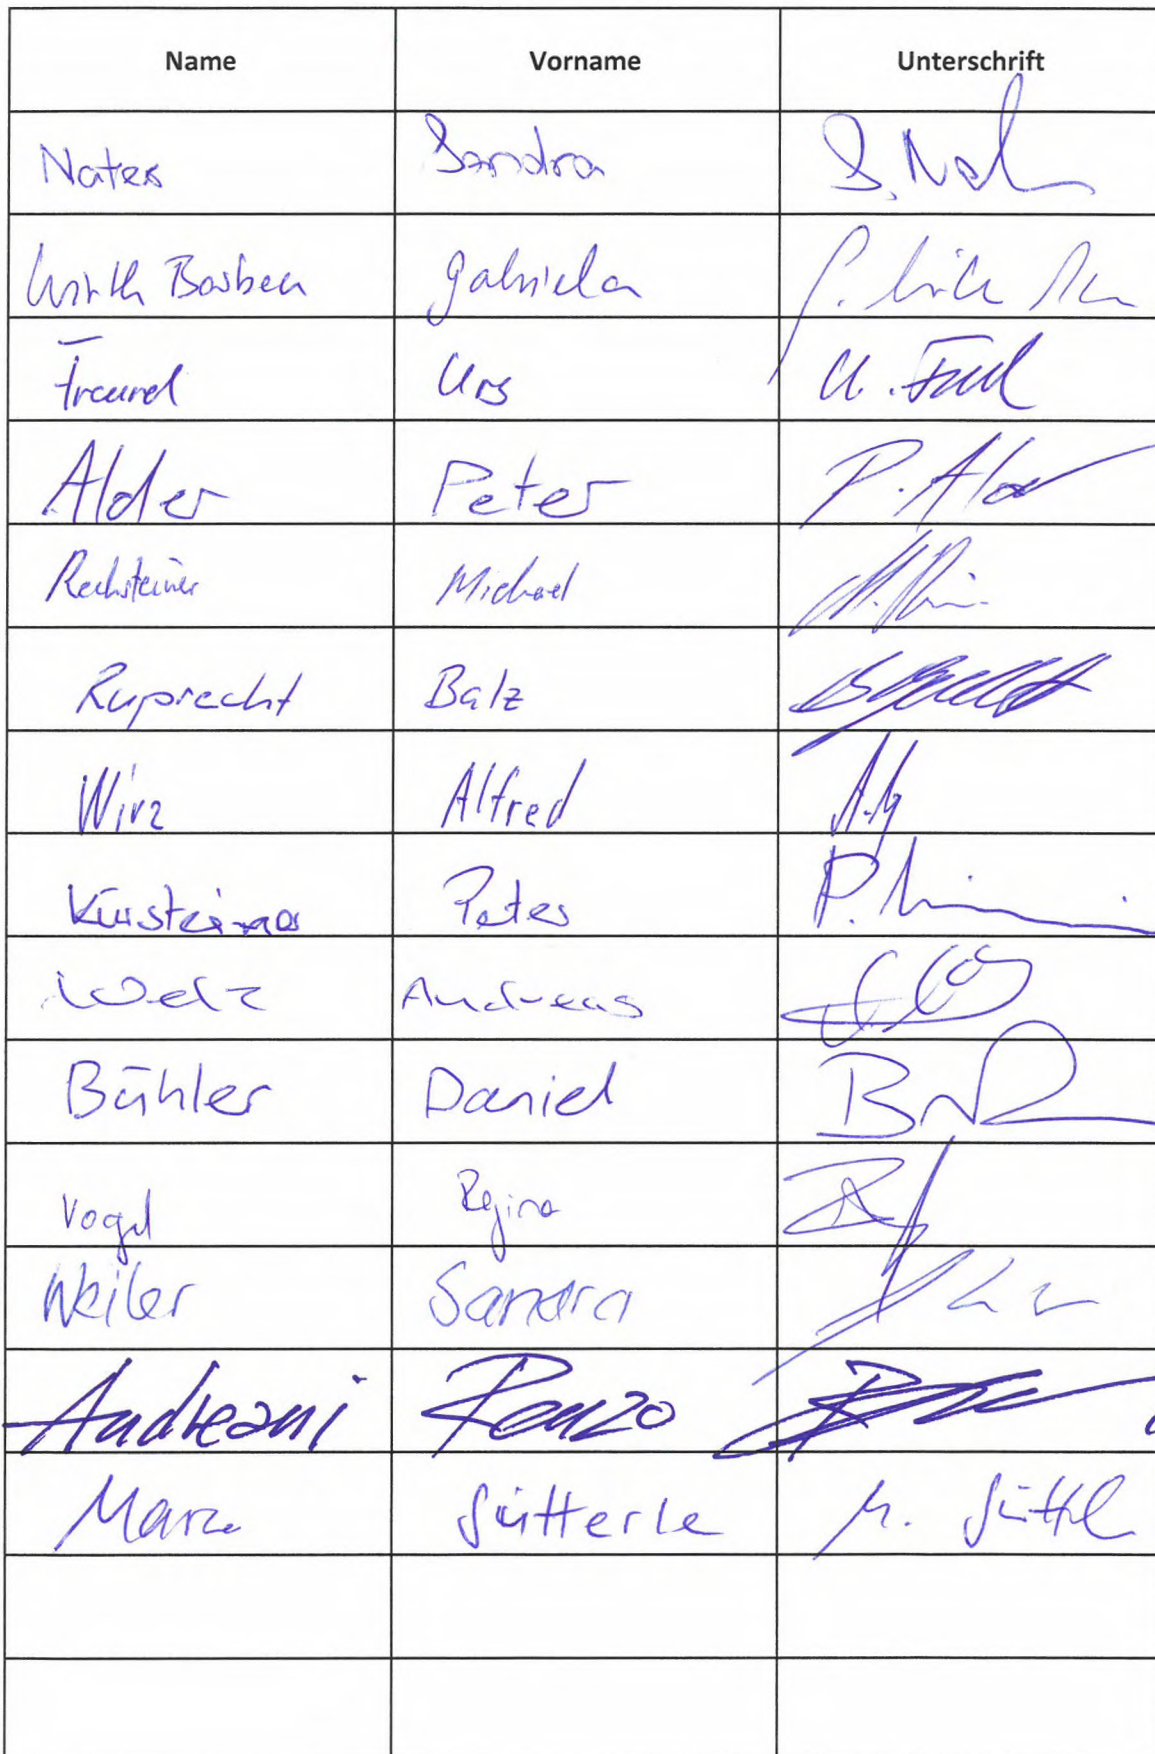 Name Vorname Unterschrift
Nater Sandra S. Nater
Wirth Barben Gabriela
Freund Urs U. Freund
Alder Peter P. Alder
Rechsteiner Michael
Ruprecht Balz
Wirz Alfred
Kürsteiner Peter
Welz Andreas
Bühler Daniel
Vogel Regina
Weiler Sandra
Andreani Renzo
Marc Sütterle M. Sütterle